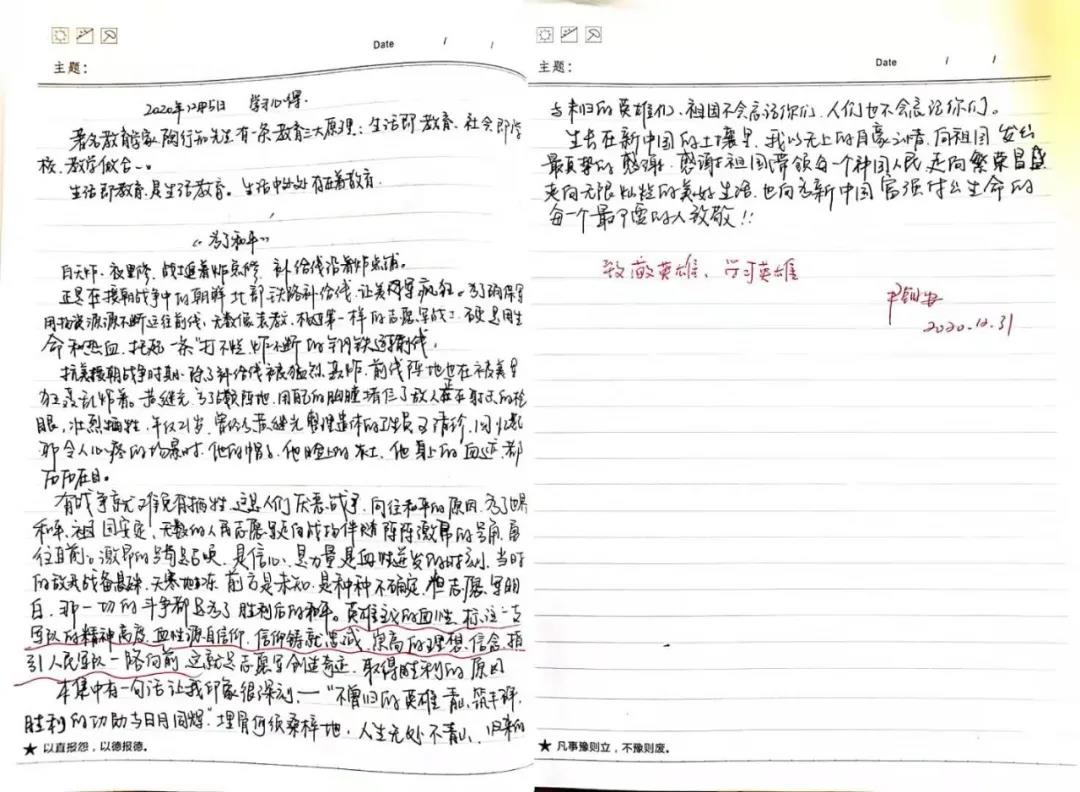 Date / /
主题：
2020年12月5日 学习心得.
著名教育学家陶行知先生有一条教育三大原理：生活即教育、社会即学
校、教学做合一。
生活即教育，是生活教育。生活中处处有着教育.
《为了和平》
白天炸、夜里修，战士追着炸点修，补给线沿着炸点铺。
正是在援朝战争中的朝鲜北部铁路补给线，让美军疯狂。为了确保军
用物资源源不断运往前线，无数像一样的志愿军战士硬是用生
命和热血，托起一条"打不烂、炸不断的钢铁运输线。
抗美援朝战争时期，除了补给线被猛烈轰炸，前线阵地也在被美军
狂轰乱炸着。黄继光为了阵地，用自己的胸膛堵住了敌人正在射击的枪
眼，壮烈牺牲，年仅21岁，曾经为黄继光整理遗体的卫生员王清珍，回忆起
那令人心疼的场景时，他的帽子，他脸上的灰土，他身上的血迹，都
历历在目。
有战争就难免有牺牲，这是人们厌恶战争、向往和平的原因，为了世界
和平、祖国安定，无数的人民志愿军走向战场伴随阵阵激昂的号角，勇
往直前。激昂的号角是召唤，是信心，是力量是血性迸发的时刻，当时
的敌我战备悬殊，天寒地冻，前方是未知，是种种不确定，但志愿军明
白，那一切的斗争都是为了胜利后的和平。英雄主义的血性，标注一支
军队的精神高度，血性源自信仰，信仰铸就忠诚，崇高的理想、信念，指
引人民军队一路向前，这就是志愿军创造奇迹、取得胜利的原因
本集中有一句话让我印象很深刻——"不曾归的英雄，青山筑丰碑，
胜利的功勋与日月同辉."埋骨何须桑梓地，人生无处不青山，归来的
★ 以直报怨，以德报德。
Date / /
主题：
与未归的英雄们，祖国不会忘记你们，人们也不会忘记你们。
生长在新中国的土壤里，我以无上的自豪之情，向祖国发出
最真挚的感谢，感谢祖国带领每一个中国人民，走向繁荣昌盛
走向无限灿烂的美好生活，也向为新中国富强付出生命的
每一个最可爱的人致敬！！
致敬英雄、学习英雄
2020.12.31
★ 凡事豫则立，不豫则废。